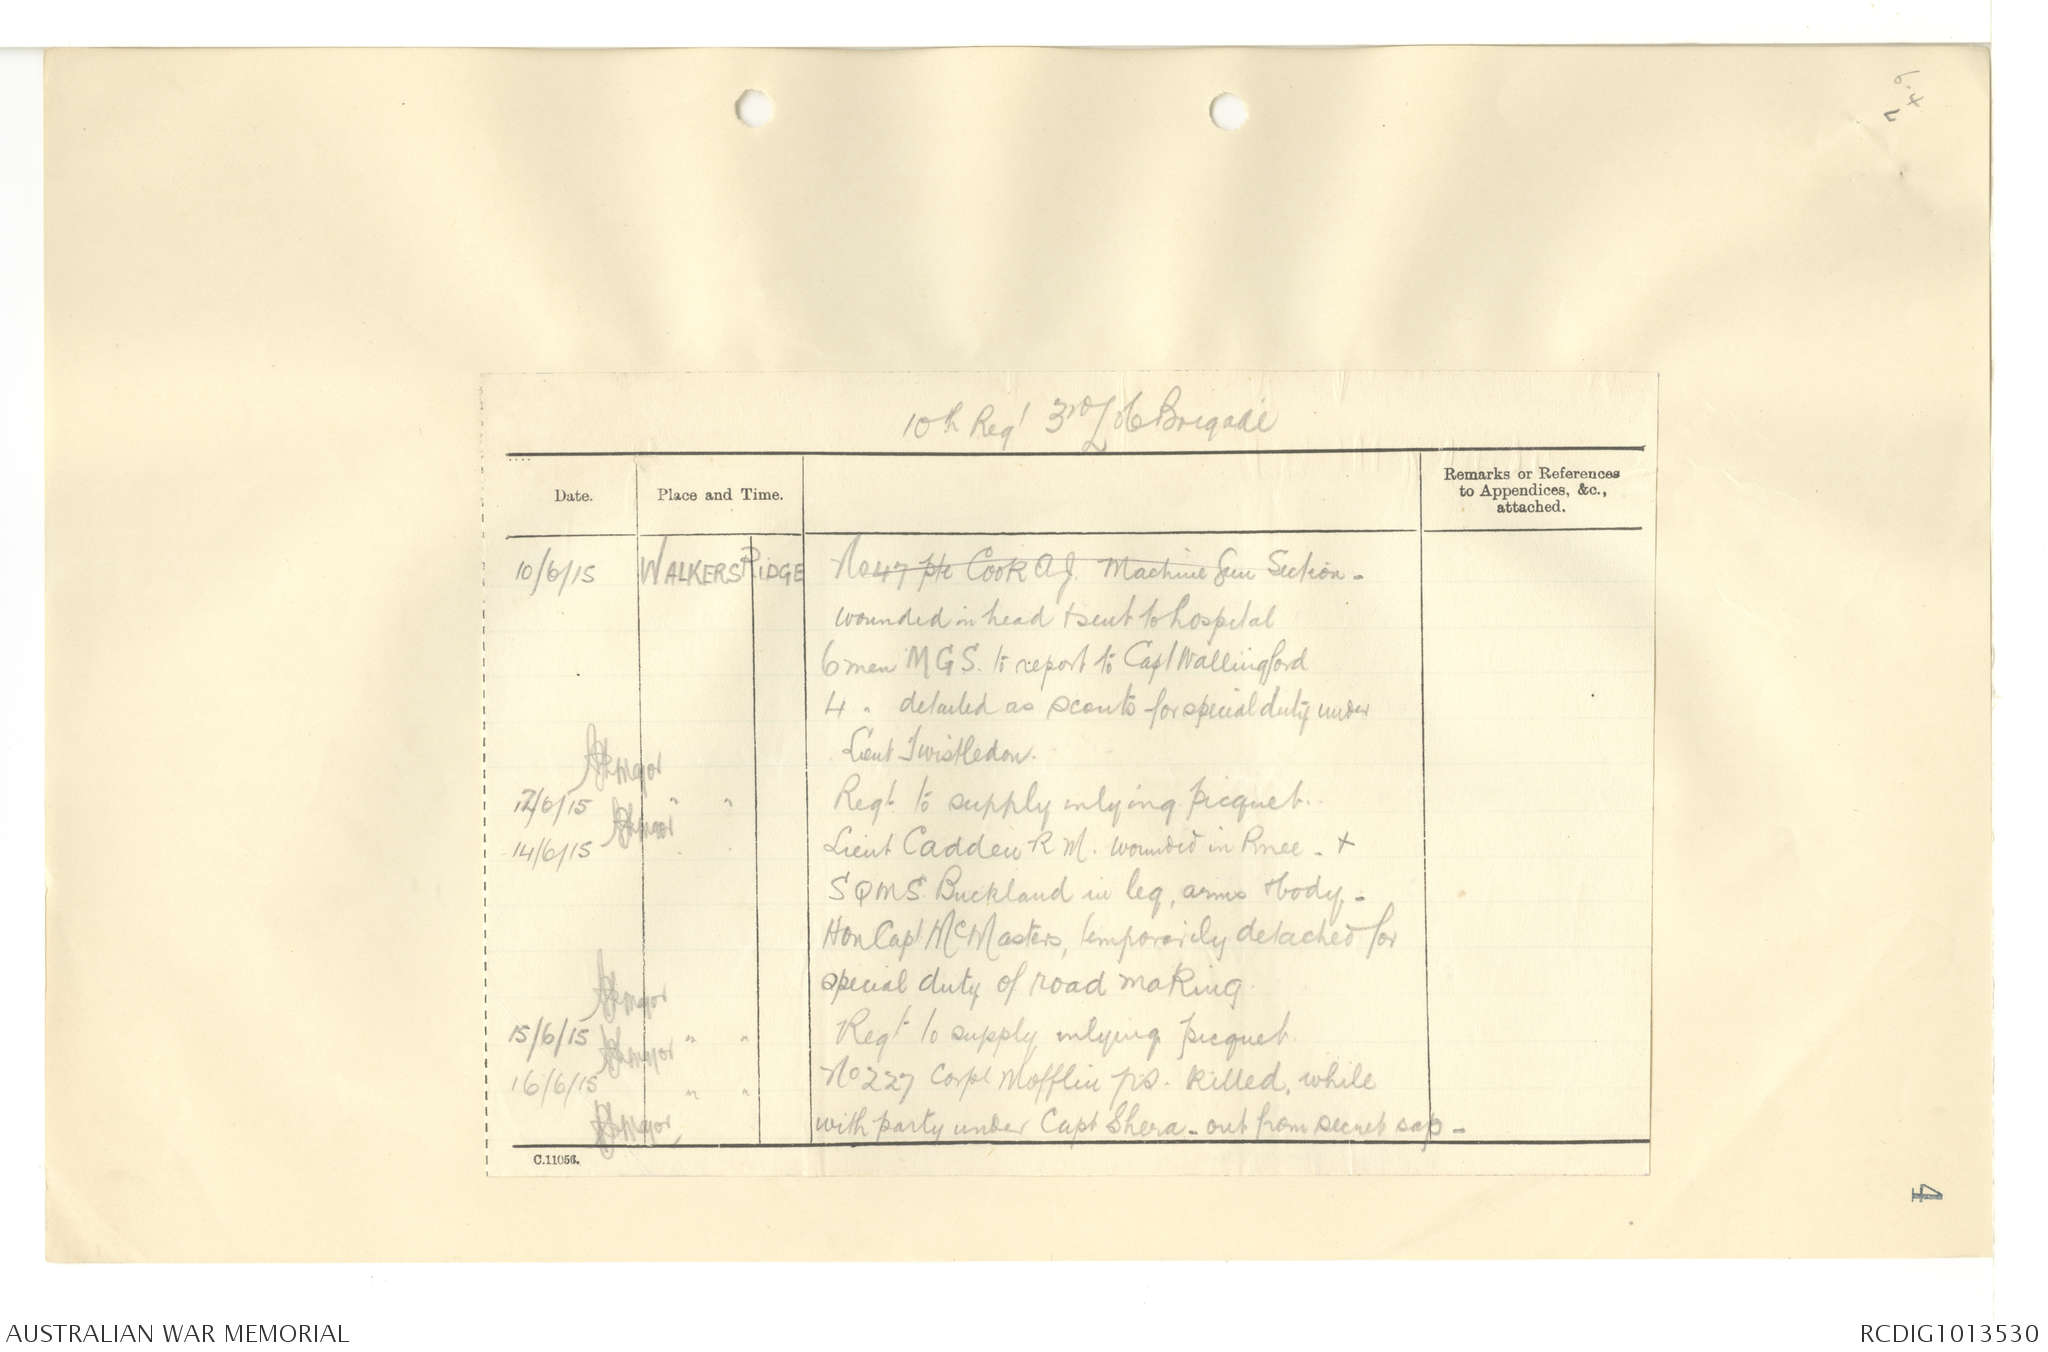 10th Regt 3rd L H Brigade
Date.
Place and Time.
Remarks or References
to Appendices, &c.,
attached.
10/6/15 WALKERS RIDGE No 47 pte Cook A J. Machine Gun Section -
wounded in head & sent to hospital
6 men M G S. to report to Capt Wallingford
4 " detailed as scouts for special duty under
Lieut Twistledon.
Major
12/6/15 " " Regt to supply inlying picquet.
Major
14/6/15 Lieut Cadden R M. wounded in knee - +
S Q M S Buckland in leg, arms & body -
Hon Capt McMasters, temporarily detached for
special duty of road making.
Major
15/6/15 " " Regt to supply inlying picquet
Major
16/6/15 " " No 227 Corpl Mofflin killed, while
with party under Capt Shera - out from secret sap -
Major
C.11056.
4
AUSTRALIAN WAR MEMORIAL
RCDIG1013530